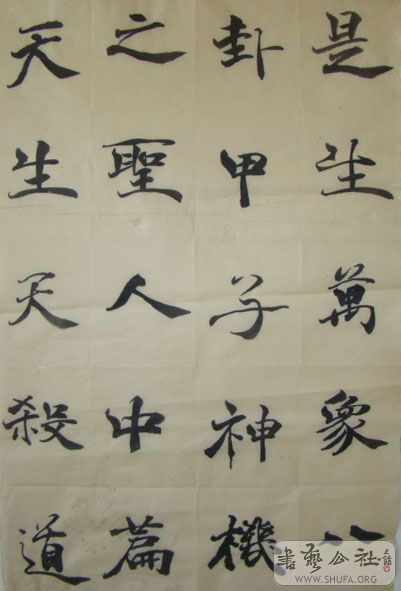 是生萬象八
卦甲子神機
之聖人中篇
天生天殺道
書藝公社
WWW.SHUFA.ORG